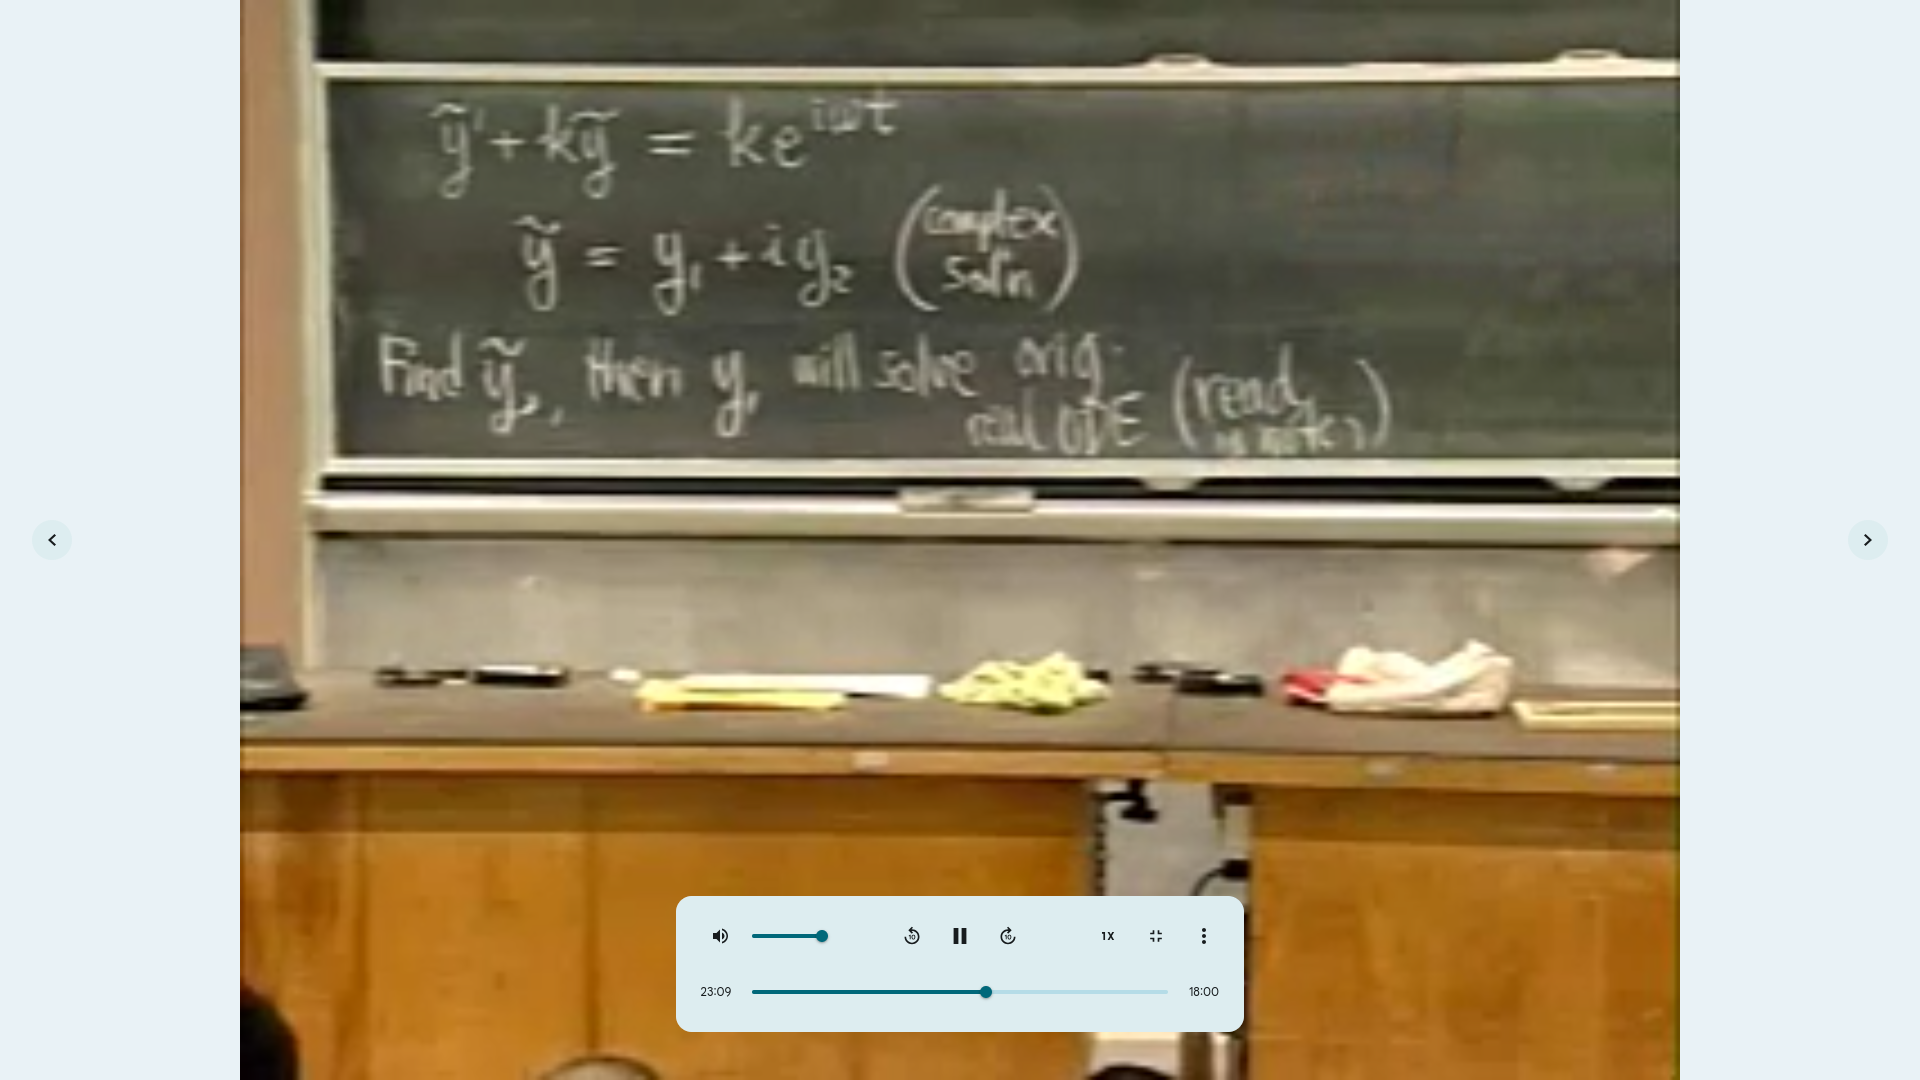 ỹ' + kỹ = ke^{iωt}
ỹ = y₁ + iy₂ (complex sol'n)
Find ỹ, then y₁ will solve orig.
real ODE (read notes)
10
10
1X
23:09
18:00